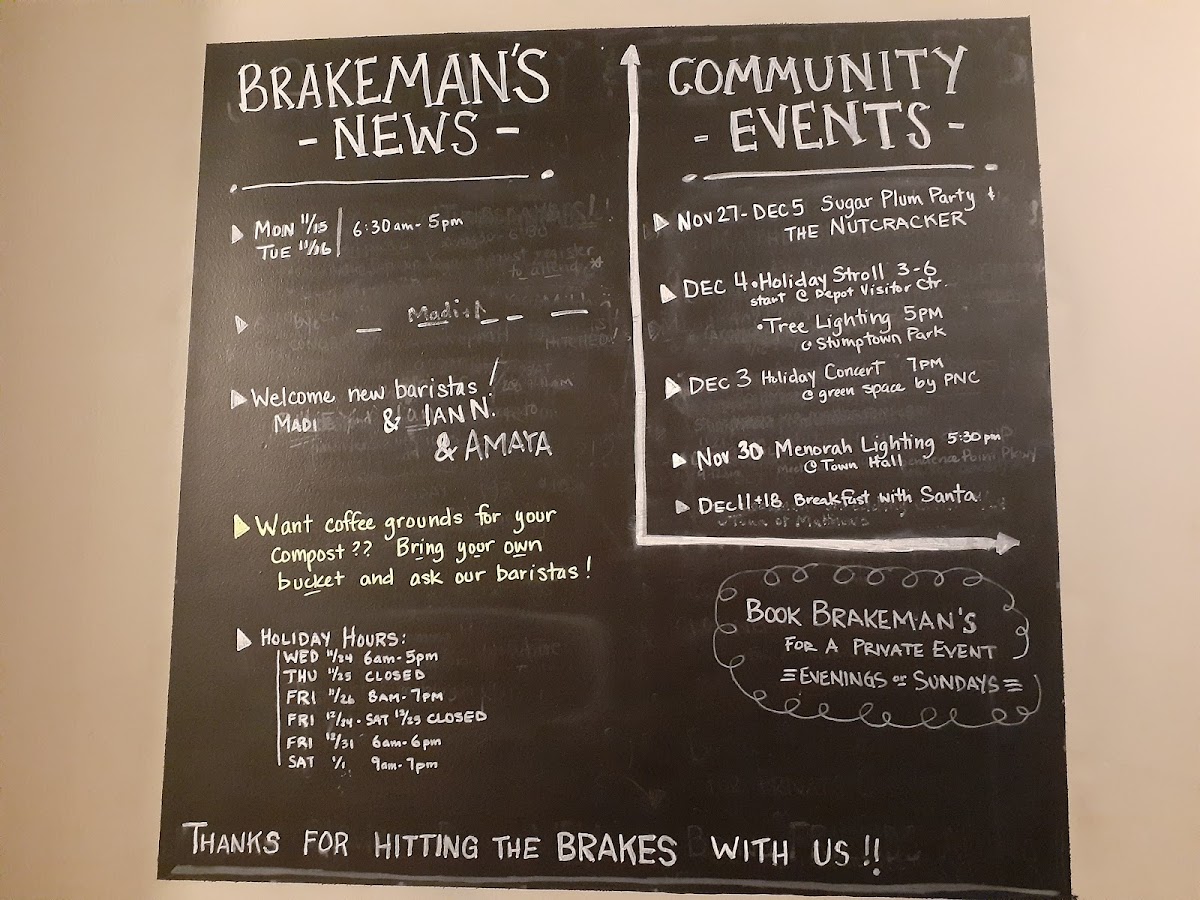 BRAKEMAN'S
- NEWS -
MON 11/15
TUE 11/16
6:30am - 5pm
Welcome new baristas!
MADI & IAN N.
& AMAYA
Want coffee grounds for your
compost?? Bring your own
bucket and ask our baristas!
HOLIDAY HOURS:
WED 11/24 6am-5pm
THU 11/25 CLOSED
FRI 11/26 8AM-7PM
FRI 12/24 - SAT 12/25 CLOSED
FRI 12/31 6am-6pm
SAT 1/1 9am-7pm
COMMUNITY
- EVENTS -
Nov 27 - DEC 5 Sugar Plum Party +
THE NUTCRACKER
DEC 4 • Holiday Stroll 3-6
start @ Depot Visitor Ctr.
• Tree Lighting 5PM
@ Stumptown Park
DEC 3 Holiday Concert 7PM
@ green space by PNC
Nov 30 Menorah Lighting 5:30pm
@ Town Hall
DEC 11+18 Breakfast with Santa
BOOK BRAKEMAN'S
FOR A PRIVATE EVENT
EVENINGS or SUNDAYS
THANKS FOR HITTING THE BRAKES WITH US!!